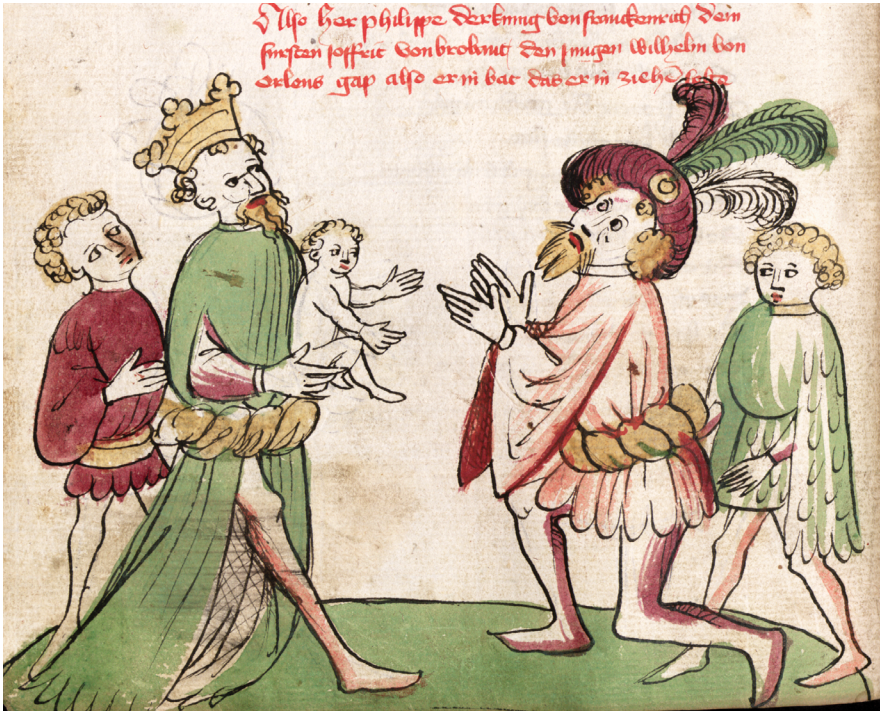 Also her philippe der kunig von franckenrich dem
fürsten joffrit von brobant den jungen wilhelm von
orlens gap also er in bat das er in ziehen